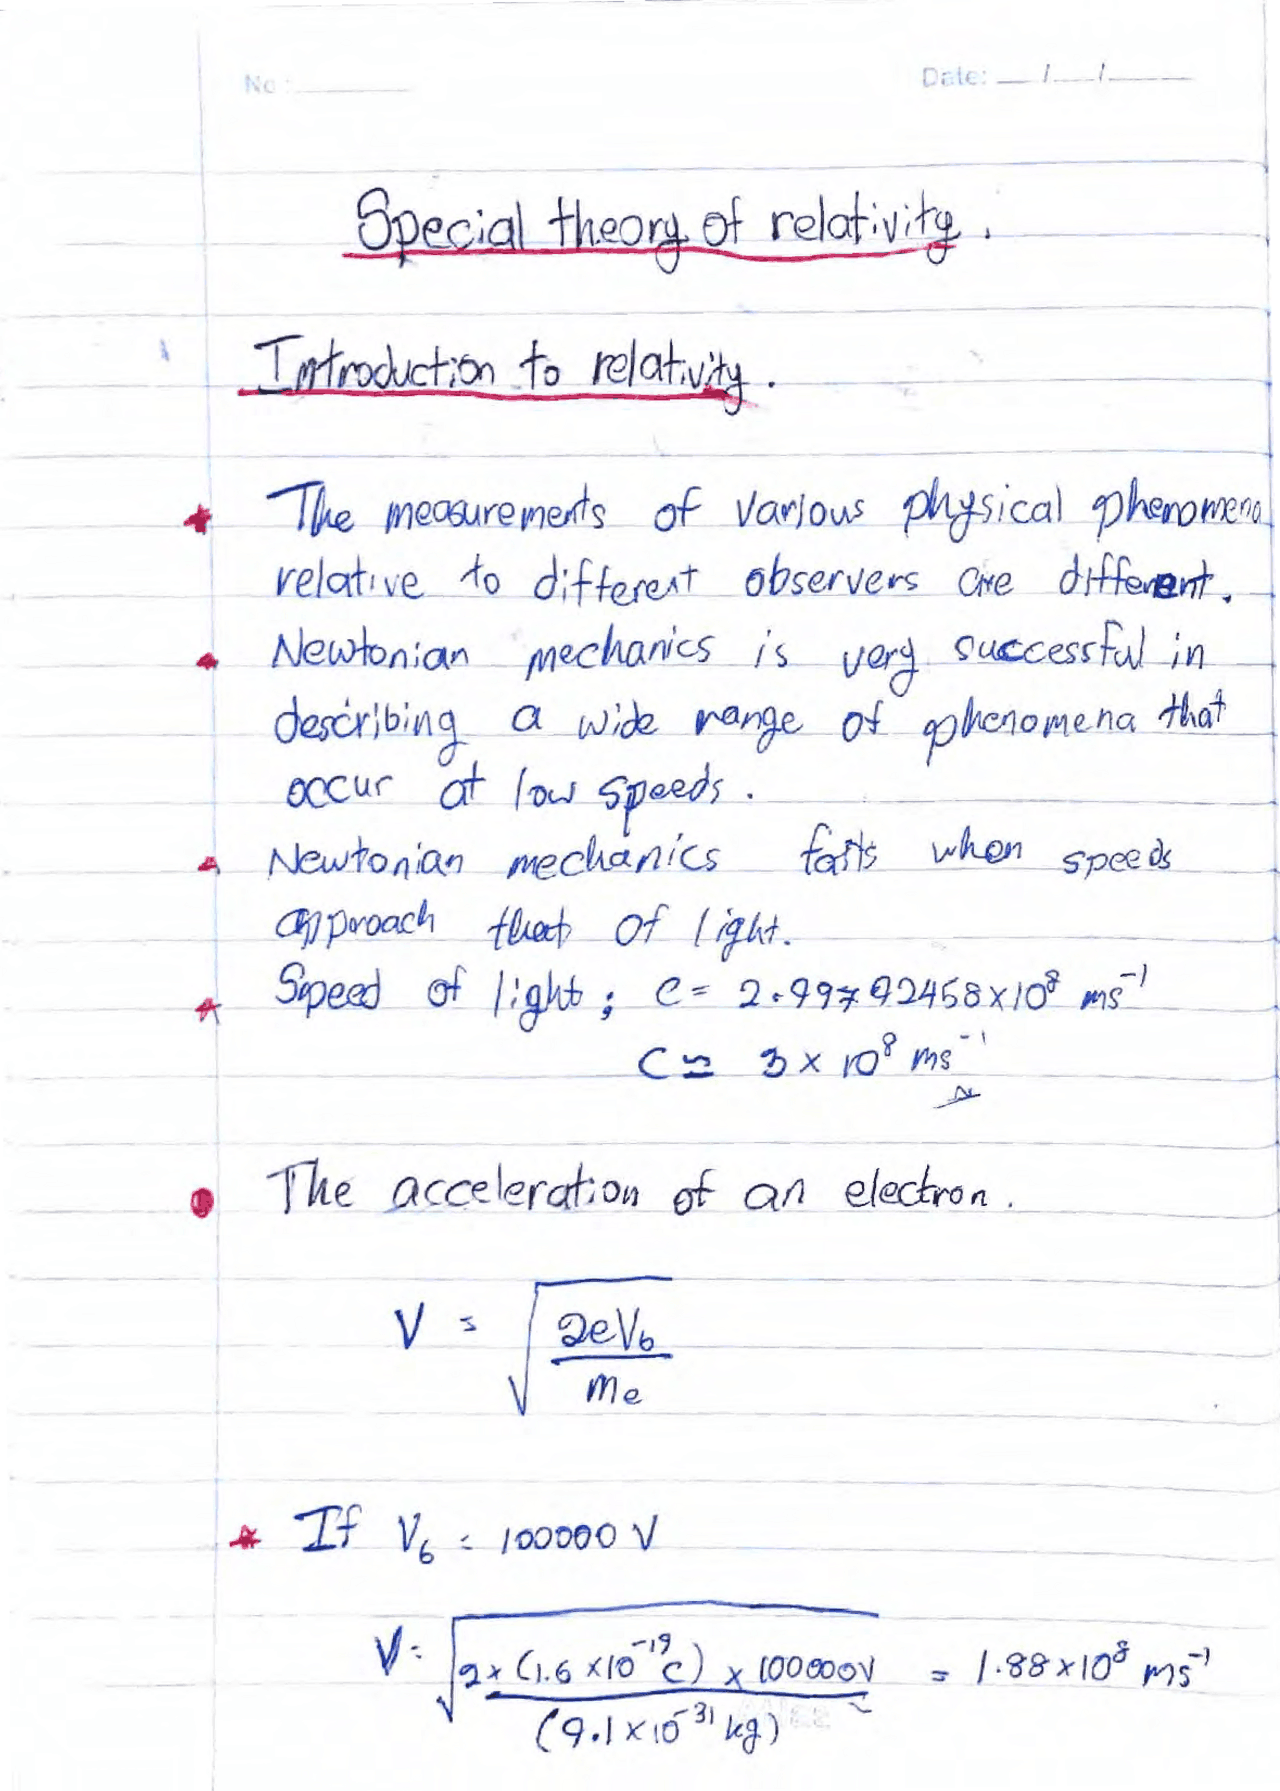 No :
Date: __/__/__
Special theory of relativity.
Introduction to relativity.
The measurements of various physical phenomena
relative to different observers are different.
Newtonian mechanics is very successful in
describing a wide range of phenomena that
occur at low speeds.
Newtonian mechanics fails when speeds
approach that of light.
Speed of light; c = 2.99792458×10⁸ ms⁻¹
C ≃ 3 × 10⁸ ms⁻¹
The acceleration of an electron.
V = √(2eV₆ / me)
If V₆ = 100000 V
V = √(2 × (1.6 ×10⁻¹⁹ C) × 100000V / (9.1 × 10⁻³¹ kg)) = 1.88×10⁸ ms⁻¹